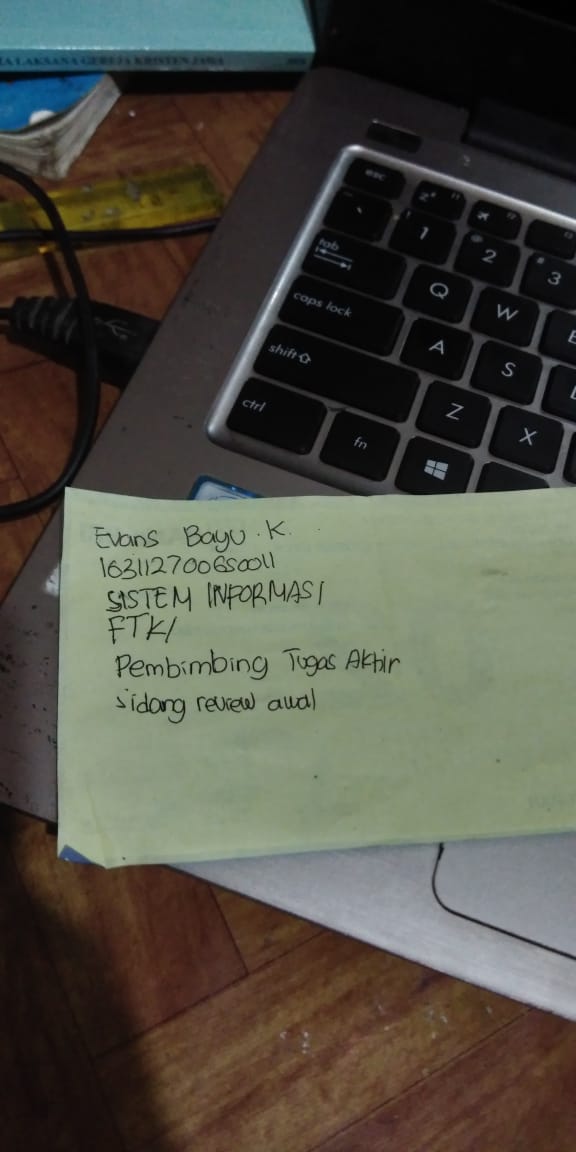 LAKSANA GEREJA KRISTEN JAWA
esc
tab
caps lock
shift
ctrl
fn
1
2
3
Q
W
A
S
Z
X
Evans Bayu . K.
163112700650011
SISTEM INFORMASI
FTKI
Pembimbing Tugas Akhir
sidang review awal